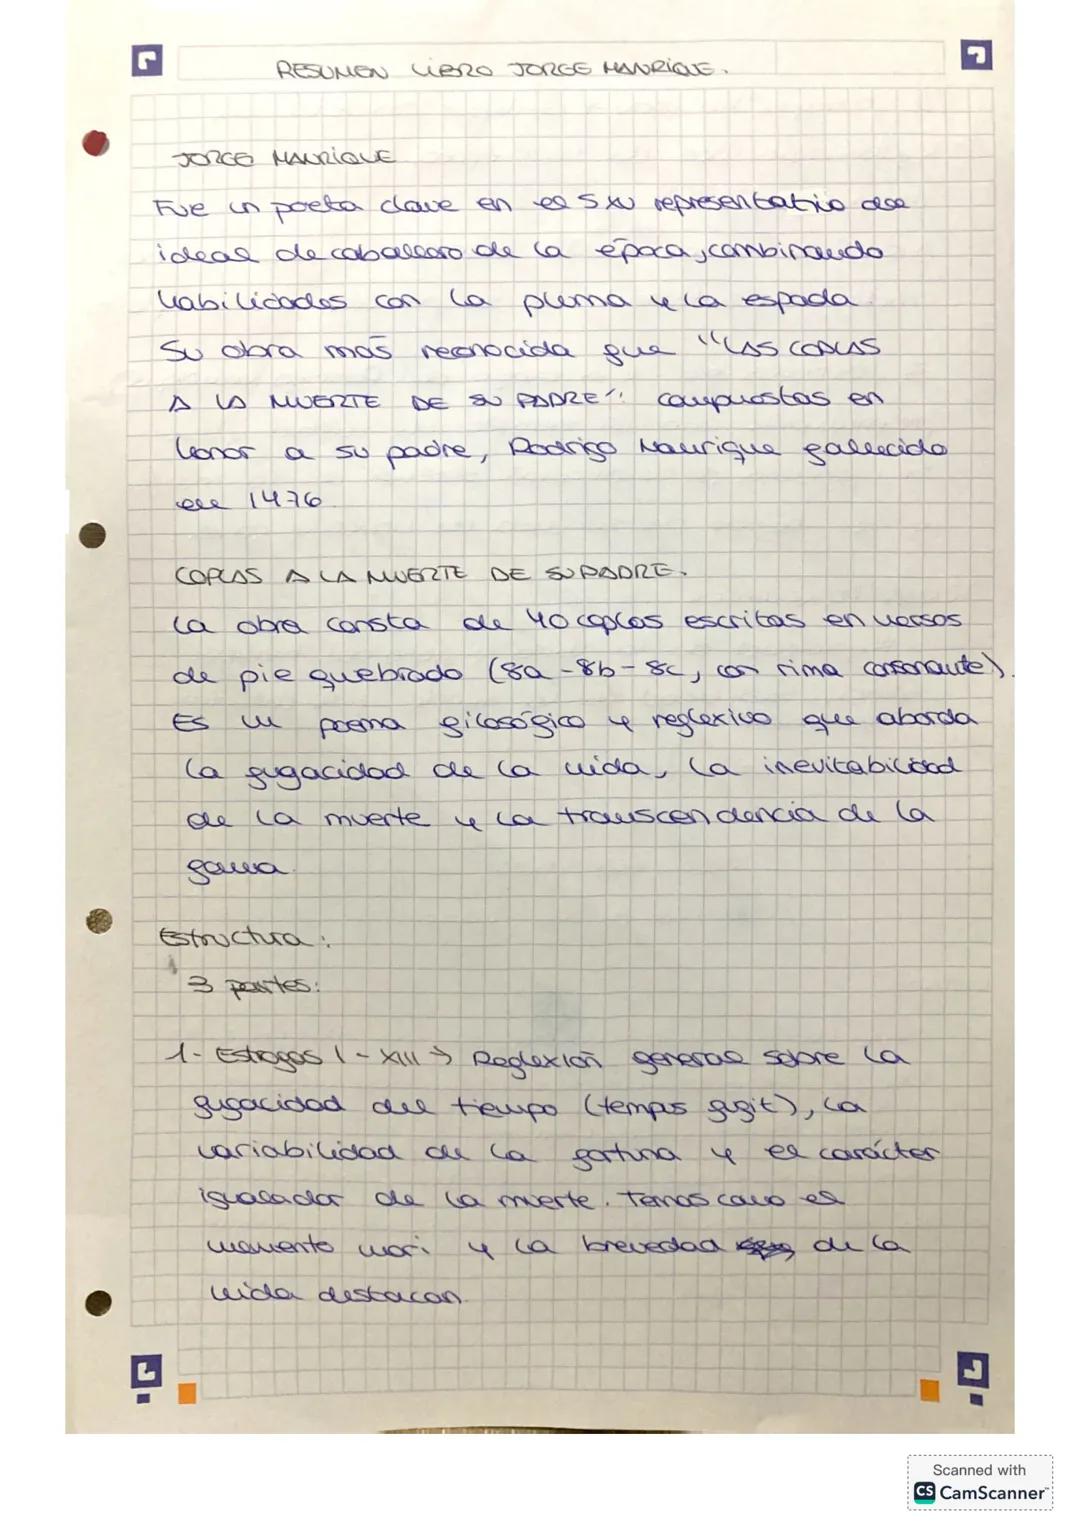 RESUMEN LIBRO JORGE MANRIQUE.
JORGE MANRIQUE
Fue un poeta clave en el S XV representativo del
ideal de caballero de la época, combinando
habilidades con la pluma y la espada.
Su obra más reconocida fue "LAS COPLAS
A LA MUERTE DE SU PADRE": compuestas en
honor a su padre, Rodrigo Manrique fallecido
en 1476
COPLAS A LA MUERTE DE SU PADRE.
La obra consta de 40 coplas escritas en versos
de pie quebrado (8a-8b-8c, con rima consonante).
Es un poema filosófico y reflexivo que aborda
la fugacidad de la vida, la inevitabilidad
de la muerte y la transcendencia de la
fama.
Estructura:
3 partes:
1- Estrofas I - XIII → Reflexión general sobre la
fugacidad del tiempo (tempus fugit), la
variabilidad de la fortuna y el carácter
igualador de la muerte. Temas como el
momento mori y la brevedad de la
vida destacan.
Scanned with
CS CamScanner